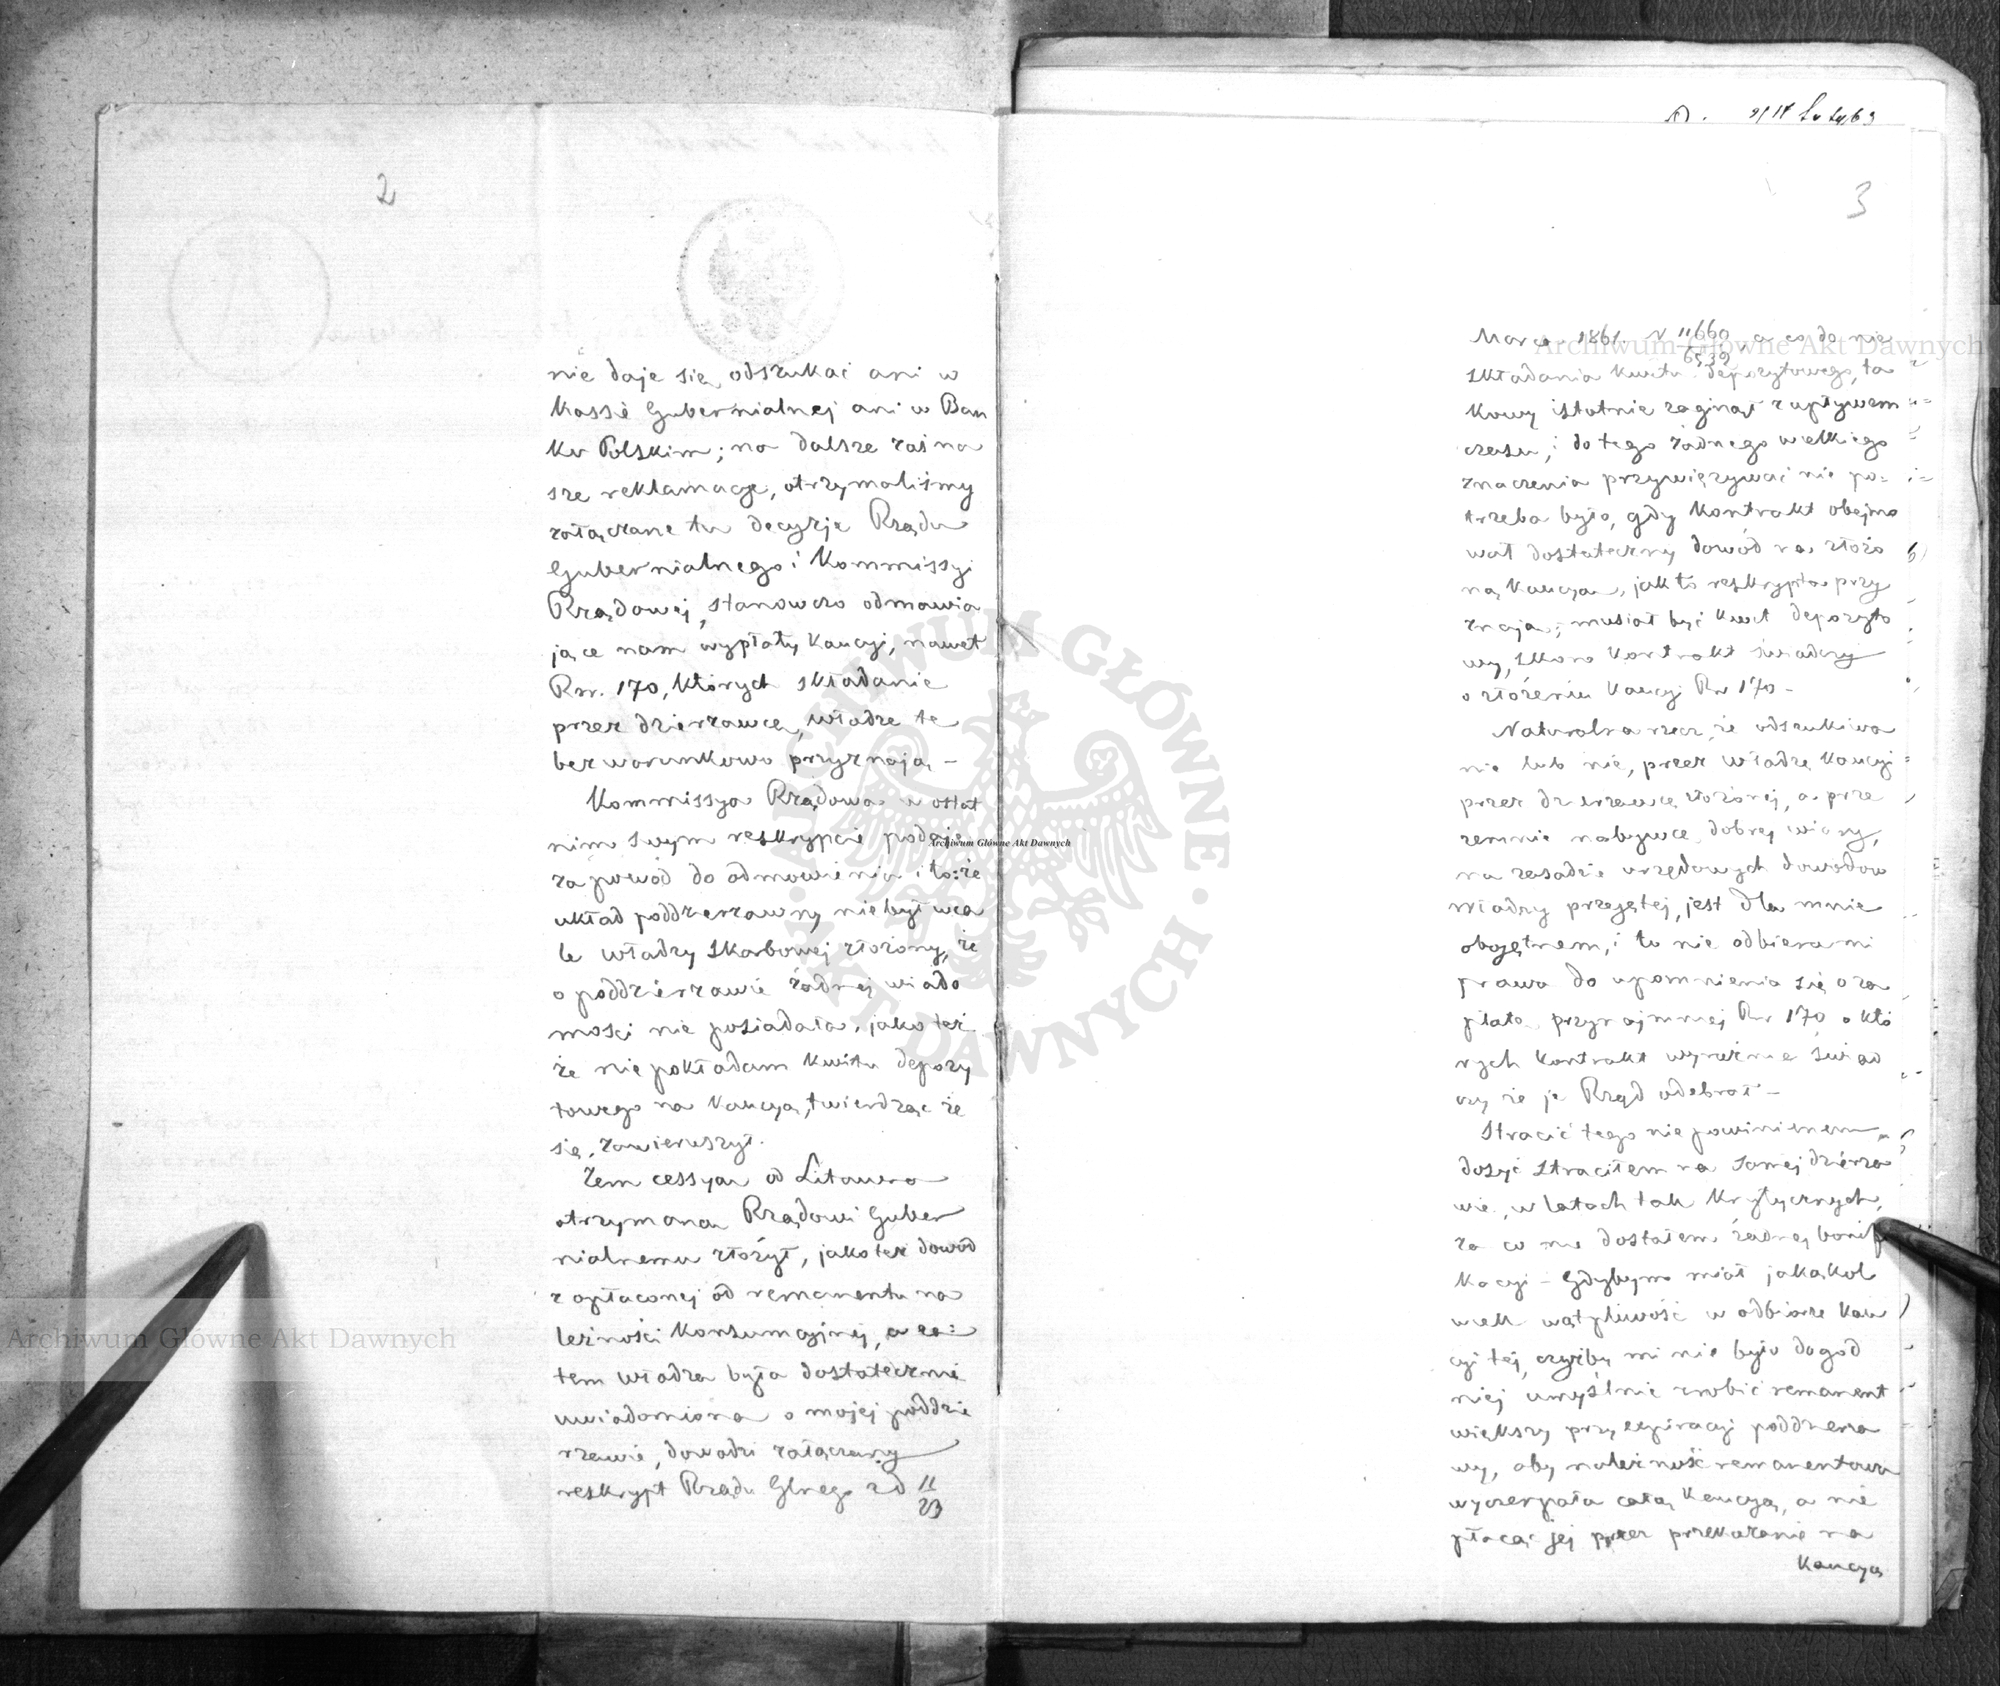 2
nie daje się odszukać ani w
Kassie Gubernialnej ani w Ban
ku Polskim; na dalsze zaś na
sze reklamacje, otrzymaliśmy
załączone tu decyzje Rządu
Gubernialnego i Kommissyi
Rządowej, stanowczo odmawia
jące nam wypłaty Kaucyi, nawet
Rsr. 170, których składanie
przez dzierżawcę, władze te
bezwarunkowo przyznają –
Kommissya Rządowa w ostat
nim swym reskrypcie podaje
za powód do odmówienia i to: że
układ poddzierżawny nie był wca
le władzy Skarbowej złożony, że
o poddzierżawie żadnej wiado
mości nie posiadała, jako też
że nie pokładam kwitu depozy
towego na Kaucyą, twierdząc że
się zawieruszył.
Żem cessyą od Litauera
otrzymaną Rządowi Guber
nialnemu złożył, jako też dowód
z opłaconej od remanentu na
leżności Konsumcyjnej, a za:
tem władza była dostatecznie
uwiadomiona o mojej poddzie
rżawie, dowodzi załączony
reskrypt Rządu Glnego z d 11/23
3
Marca 1861. N 11660/6539, a co do nie
składania kwitu depozytowego, ta
kowy istotnie zaginął z upływem
czasu, i do tego żadnego wielkiego
znaczenia przywięzywać nie po=
trzeba było, gdy Kontrakt obejmo
wał dostateczny dowód na złożo
ną Kaucyą, jak to reskrypta przy
znają; musiał być kwit depozyto
wy, skoro Kontrakt świadczy
o złożeniu Kaucyi Rsr 170 –
Naturalna rzecz, że odszukiwa
nie lub nie, przez władzę Kaucyi
przez dzierżawcę złożonej, a prze
zemnie nabywcę dobrej wiary,
na zasadzie urzędowych dowodów
władzy przejętej, jest dla mnie
obojętnem, i to nie odbiera mi
prawa do upomnienia się o za
płatę przynajmniej Rsr 170 o któ
rych Kontrakt wyraźnie świad
czy że je Rząd odebrał –
Stracić tego nie powinienem,
dosyć straciłem na samej dzierża
wie, w latach tak krytycznych,
za co nie dostałem żadnej bonifi
kacyi – Gdybym miał jakąkol
wiek wątpliwość w odbiorze Kau
cyi tej, czyżby mi nie było dogod
niej umyślnie zrobić remanent
większy przy expiracyi poddzierża
wy, aby należność remanentowa
wyczerpała całą Kaucyą, a nie
płacąc jej przez przekazanie na
Kaucyą
Archiwum Główne Akt Dawnych
Archiwum Główne Akt Dawnych
Archiwum Główne Akt Dawnych
ARCHIWUM GŁÓWNE AKT DAWNYCH